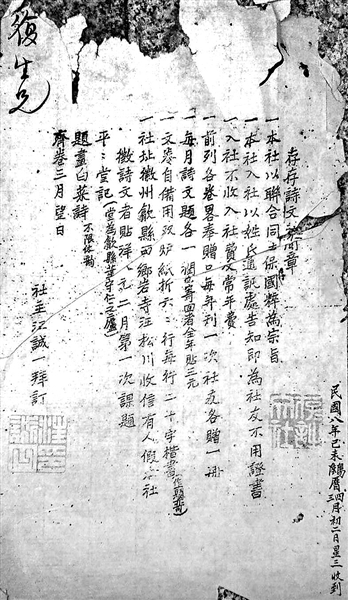 復生兄
存存詩文社簡章
一本社以聯合同志保國粹為宗旨
一本社入社以姓氏通訊處告知即為社友不用證書
一入社不收入社費及常年費
一前列各卷畧奉贈品每年刊一次社友各贈一冊
一每月詩文題各一
一文卷自備用紙折六行每行二十字楷書
一社址徽州歙縣西鄉岩寺汪松川收信有人
徵詩文者貼洋元二月第一次課題
平堂記
題畫白菜詩 不限体韵
齊卷三月望日
社主江誠一拜訂
民國八年己未陽曆四月初二日星三收到